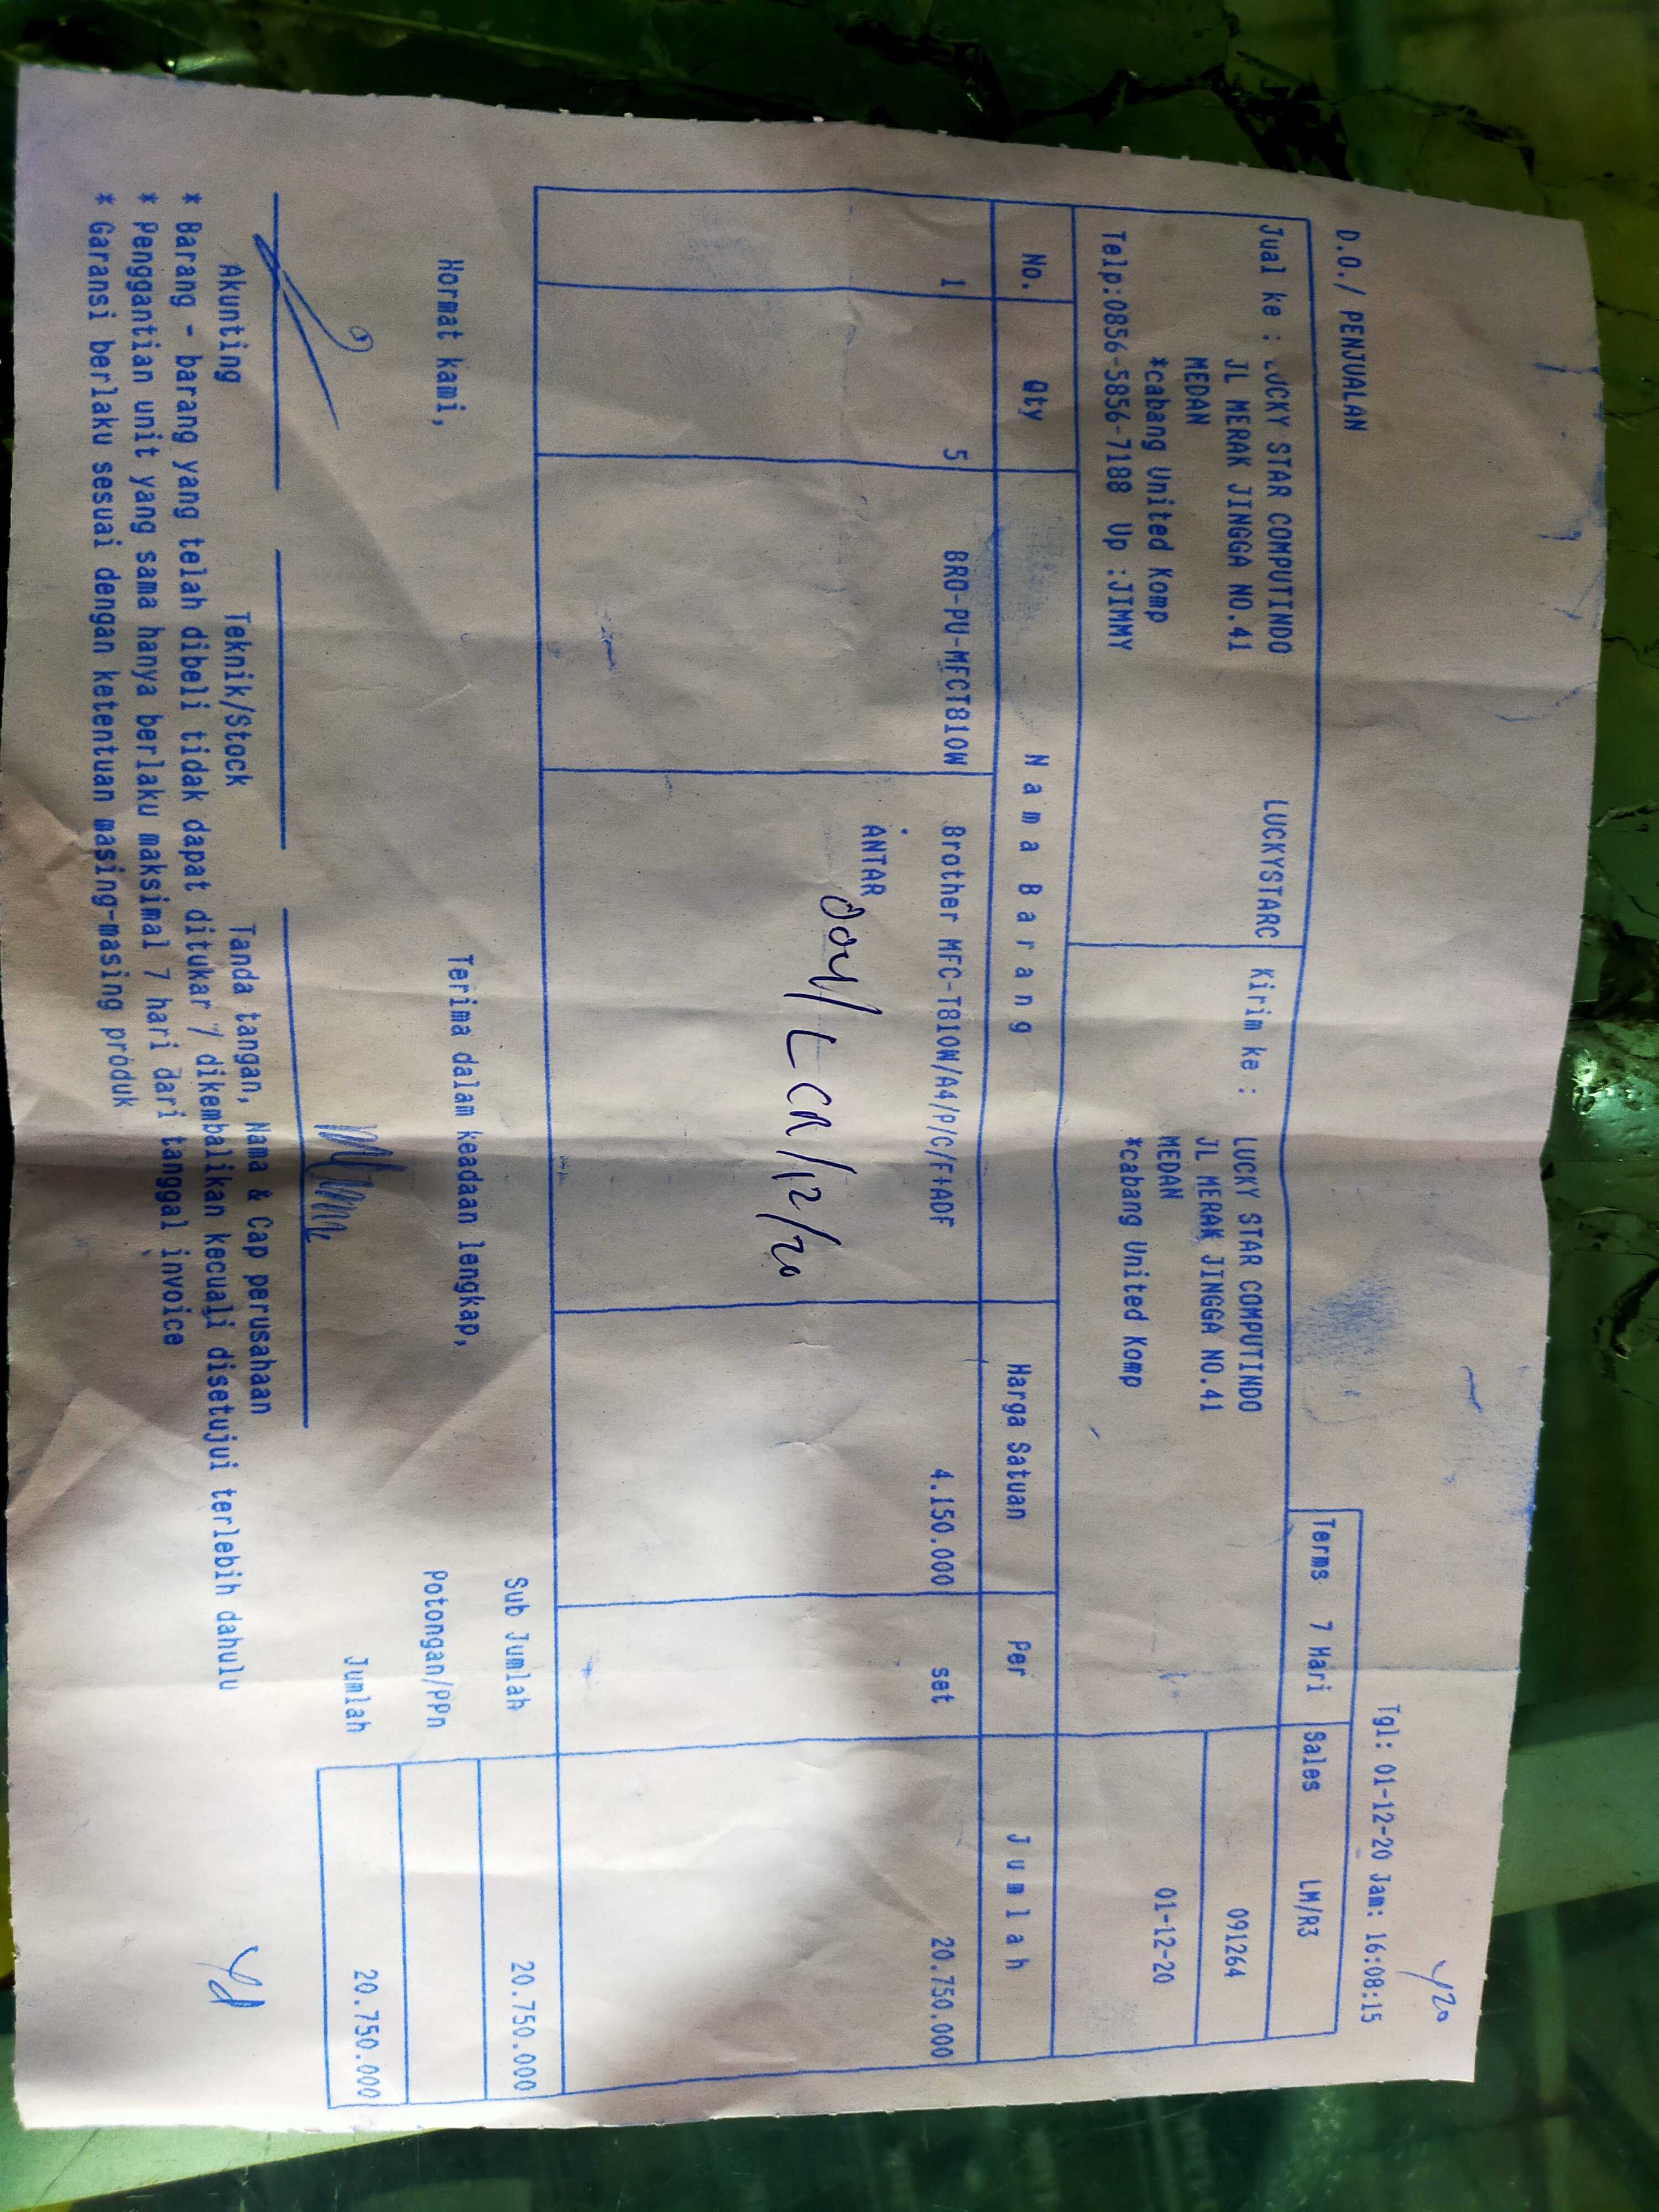 Tgl: 01-12-20 Jam: 16:08:15
D.O./ PENJUALAN
Terms 7 Hari Sales LM/R3
Jual ke : LUCKY STAR COMPUTINDO LUCKYSTARC
JL MERAK JINGGA NO.41
MEDAN
*cabang United Komp
Telp:0856-5856-7188 Up :JIMMY
Kirim ke : LUCKY STAR COMPUTINDO
JL MERAK JINGGA NO.41
MEDAN
*cabang United Komp
091264
01-12-20
No. Qty Nama Barang Harga Satuan Per Jumlah
1 5 BRO-PU-MFCT810W Brother MFC-T810W/A4/P/C/F+ADF 4.150.000 set 20.750.000
ANTAR
Sub Jumlah 20.750.000
Potongan/PPn
Jumlah 20.750.000
Hormat kami, Terima dalam keadaan lengkap,
Akunting Teknik/Stock Tanda tangan, Nama & Cap perusahaan
* Barang - barang yang telah dibeli tidak dapat ditukar / dikembalikan kecuali disetujui terlebih dahulu
* Penggantian unit yang sama hanya berlaku maksimal 7 hari dari tanggal invoice
* Garansi berlaku sesuai dengan ketentuan masing-masing produk